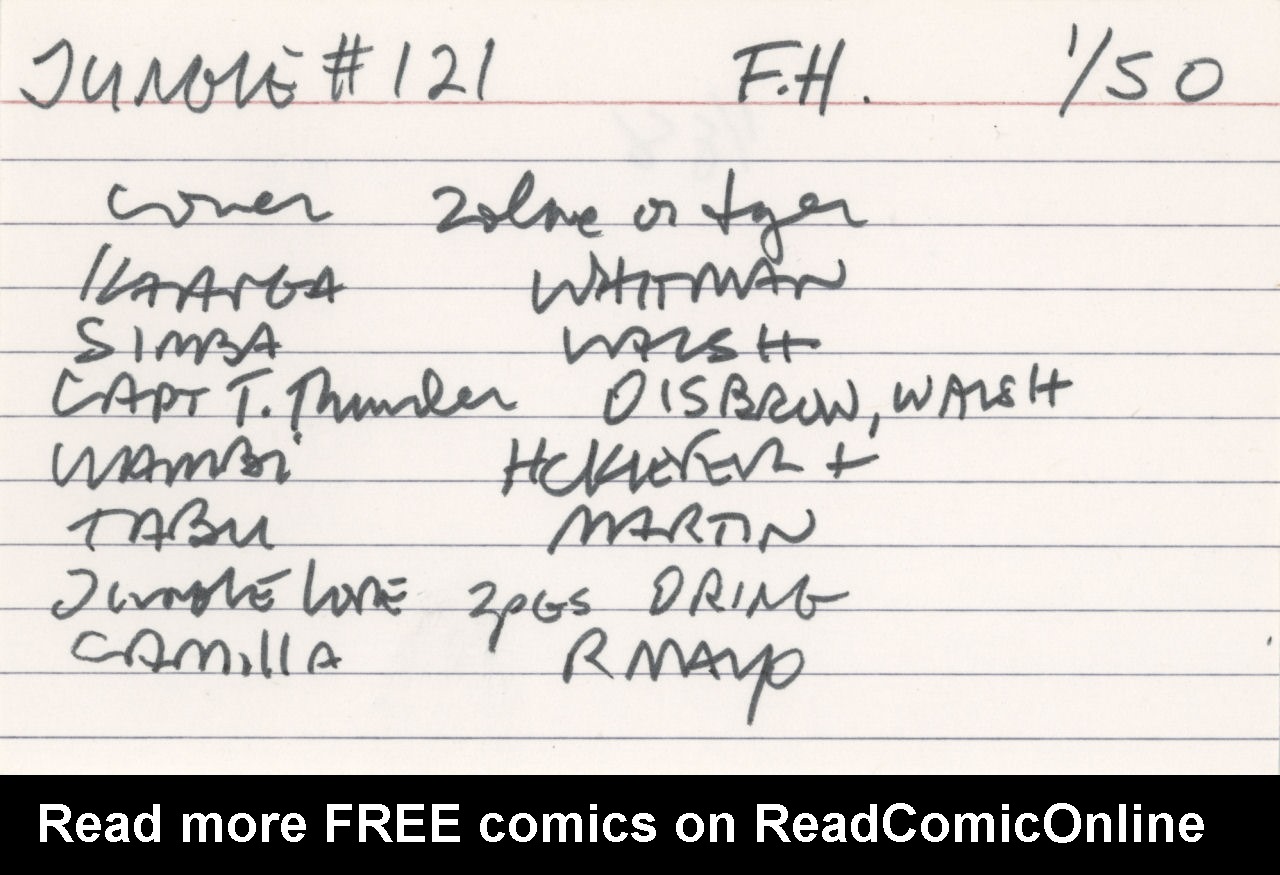 JUNGLE #121 F.H. 1/50
cover Zolne or tyer
KAANGA WHITMAN
SIMBA WALSH
CAPT T. Thunder DISBROW, WALSH
WAMBI HCKIEFER +
TABU MARTIN
JUNGLE LORE 2pGS DRING
CAMIllA R MAYO
Read more FREE comics on ReadComicOnline